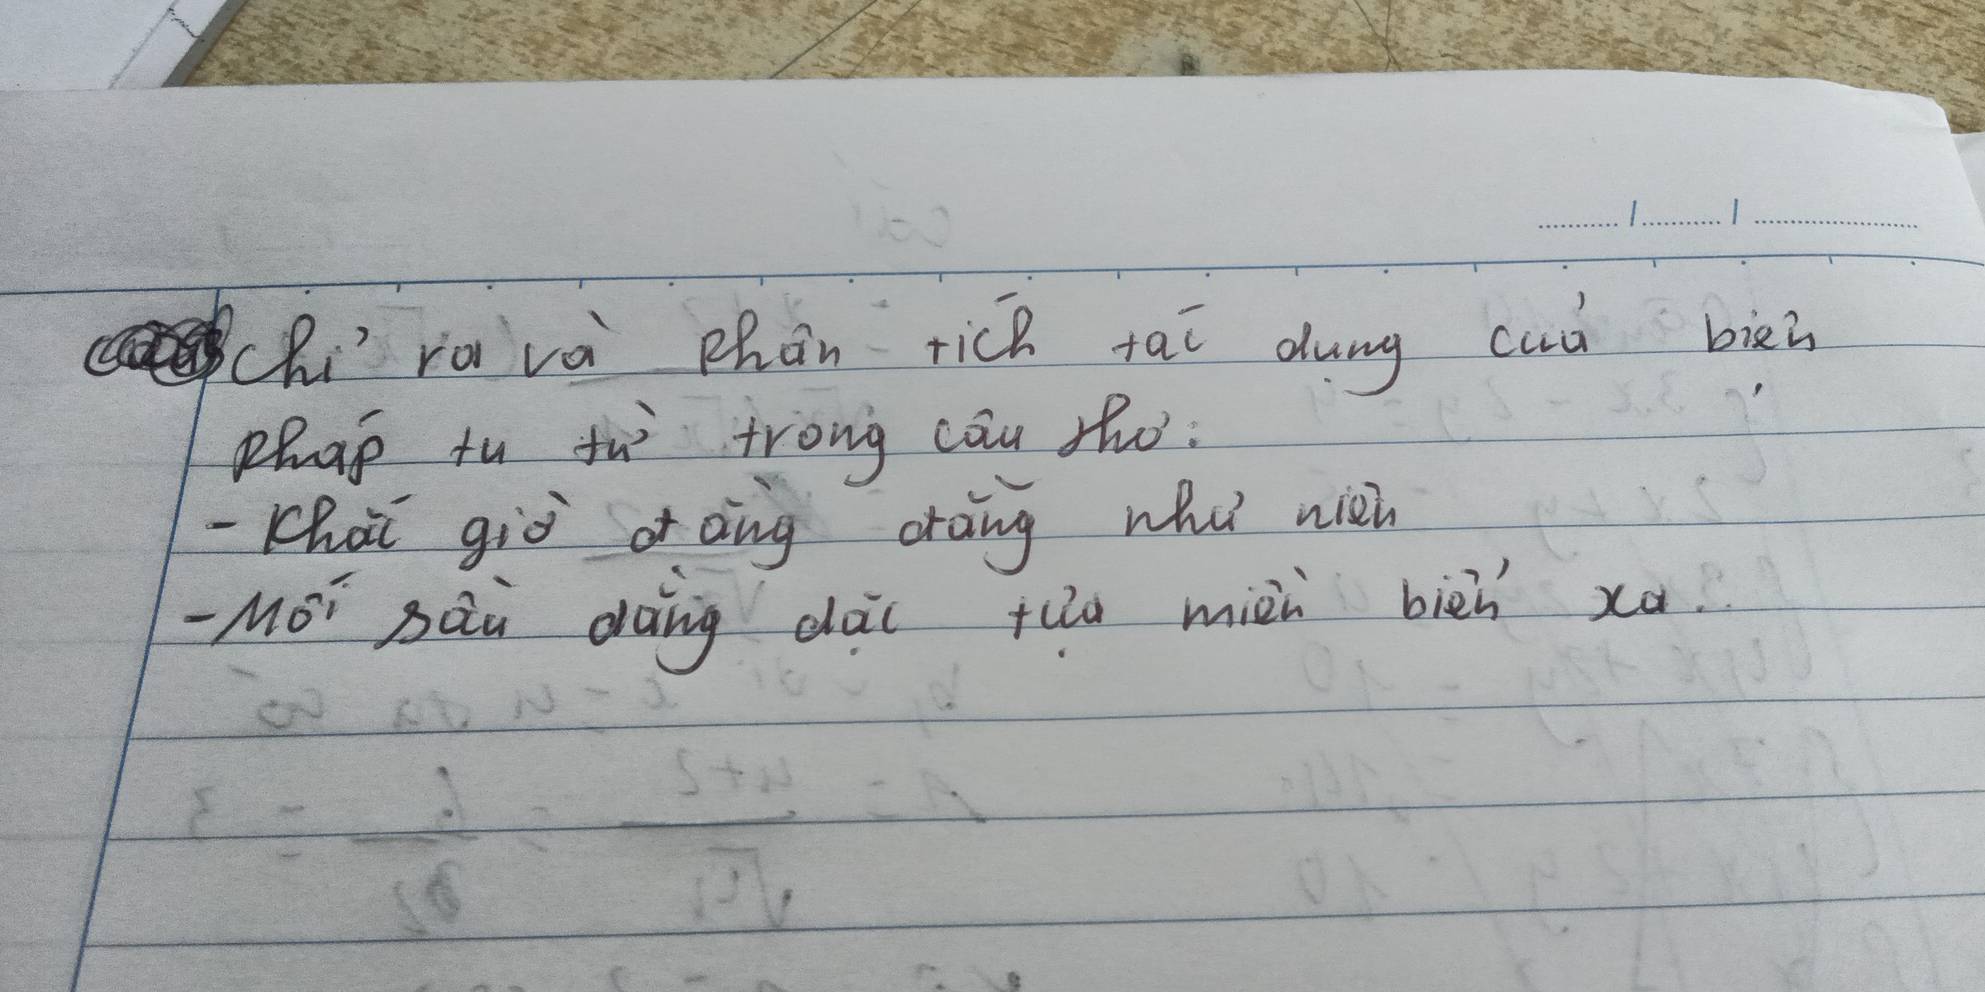 Chỉ ra và phân tích tác dụng của biện
pháp tu từ trong câu thơ:
- Khắc giờ đằng đẵng như niên
- Mối sầu dằng dặc tựa miền biển xa.